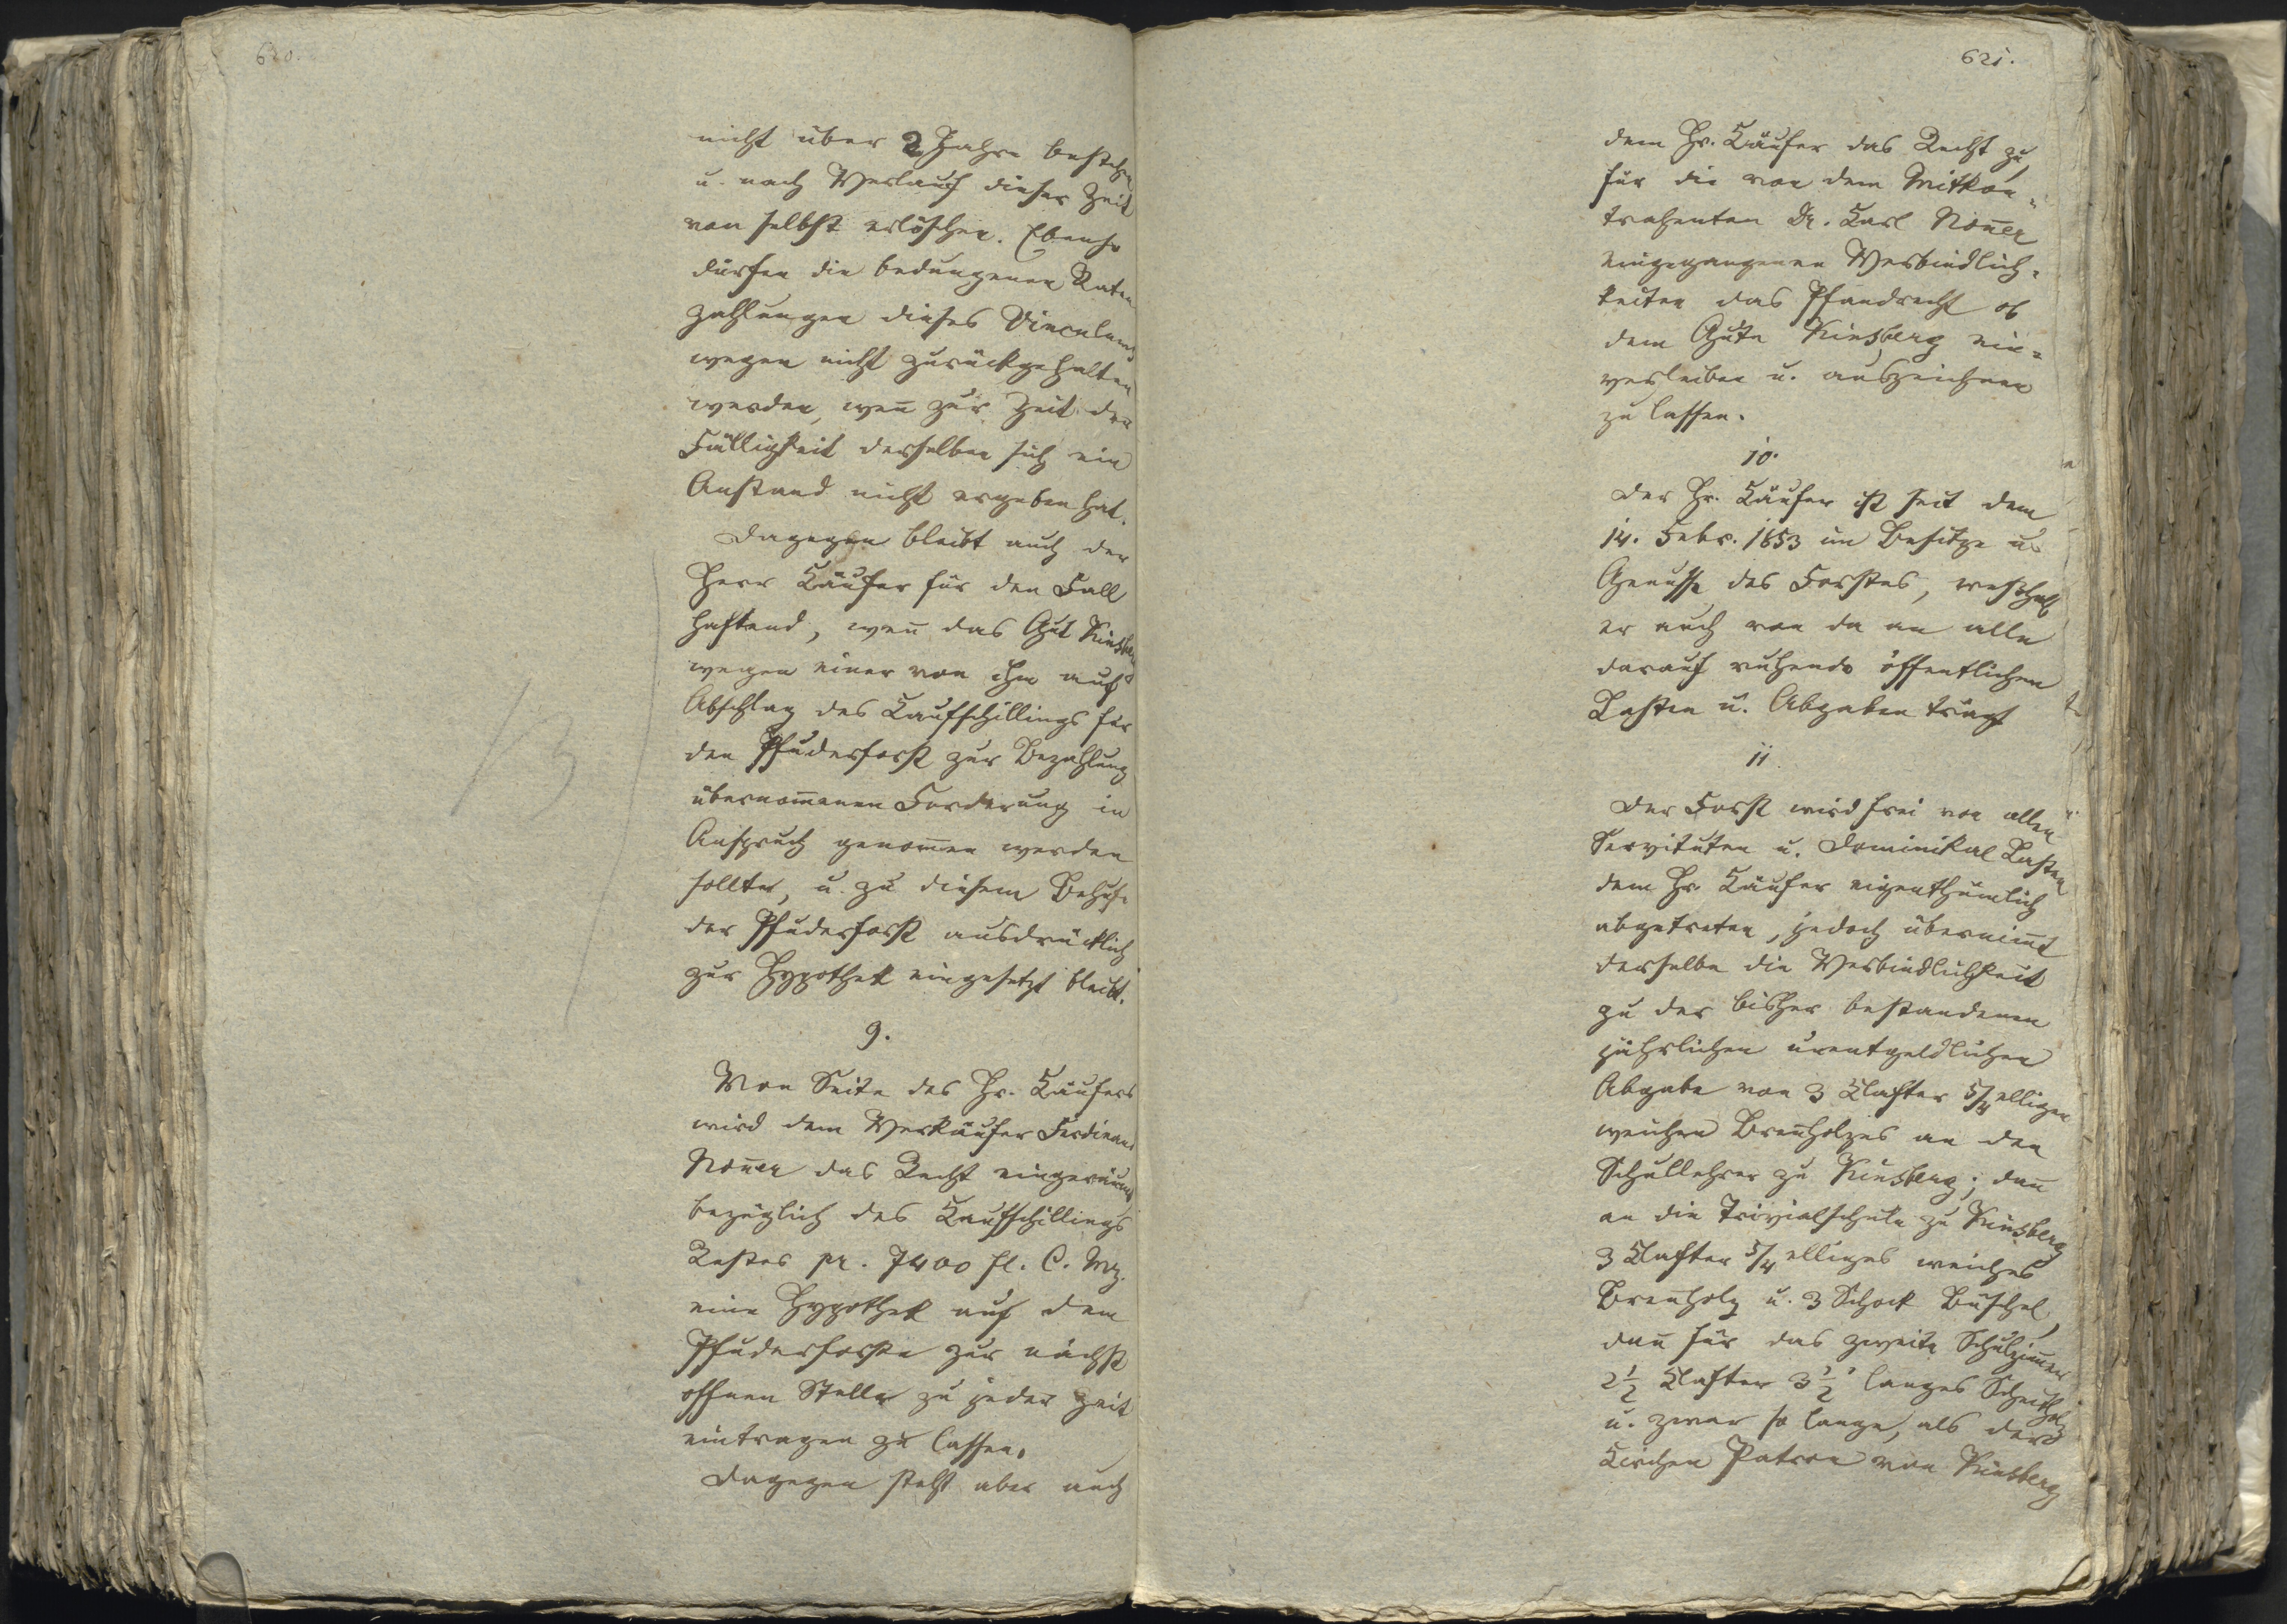 620.
nicht über 2 Jahre bestehen
u. nach Verlauf dieser Zeit
von selbst erlöschen. Ebenso
dürfen die bedungenen Raten
Zahlungen dieses Vinculums
wegen nicht zurückgehalten
werden, wen̄ zur Zeit der
Fälligkeit derselben sich ein
Anstand nicht ergeben hat.
Dagegen bleibt auch der
Herr Käufer für den Fall
haftend, wen̄ das Gut Kinsberg
wegen einer von ihm auf
Abschlag des Kaufschillings für
den Pfuderforst zur Bezahlung
übernom̄enen Forderung in
Anspruch genom̄en werden
sollte, u. zu diesem Behufe
der Pfuderforst ausdrücklich
zur Hypothek eingesetzt bleibt.
13
9.
Von Seite des Hr. Käufers
wird dem Verkäufer Ferdinand
Non̄er das Recht eingeräumt
bezüglich des Kaufschillings
Restes pr. 7400 fl. C. Mz.
eine Hypothek auf dem
Pfuderforste zur nächst
offnen Stelle zu jeder Zeit
eintragen zu lassen.
Dagegen steht aber auch
621.
dem Hr. Käufer das Recht zu,
für die von dem Mitkon=
trahenten Dr. Karl Non̄er
eingegangenen Verbindlich=
keiten das Pfandrecht ob
dem Gute Kinsberg ein=
verleiben u. auszeichnen
zu lassen.
10.
Der Hr. Käufer ist seit dem
14. Febr. 1853 im Besitze u.
Genusse des Forstes, weßhalb
er auch von da an alle
darauf ruhende öffentlichen
Lasten u. Abgaben trägt
11.
Der Forst wird frei von allen
Servituten u. Dominikal Lasten
dem Hr. Käufer eigenthümlich
abgetreten, jedoch übernim̄t
derselbe die Verbindlichkeit
zu der bisher bestandenen
jährlichen unentgeldlichen
Abgabe von 3 Klafter 5/4 elligen
weichen Bren̄holzes an den
Schullehrer zu Kinsberg; dan̄
an die Trivialschule zu Kinsberg
3 Klafter 5/4 elliges weiches
Bren̄holz u. 3 Schock Büschel,
dan̄ für das zweite Schulzim̄er
2½ Klafter 3½' langes Scheitholz
u. zwar so lange, als der
Kirchen Patron von Kinsberg